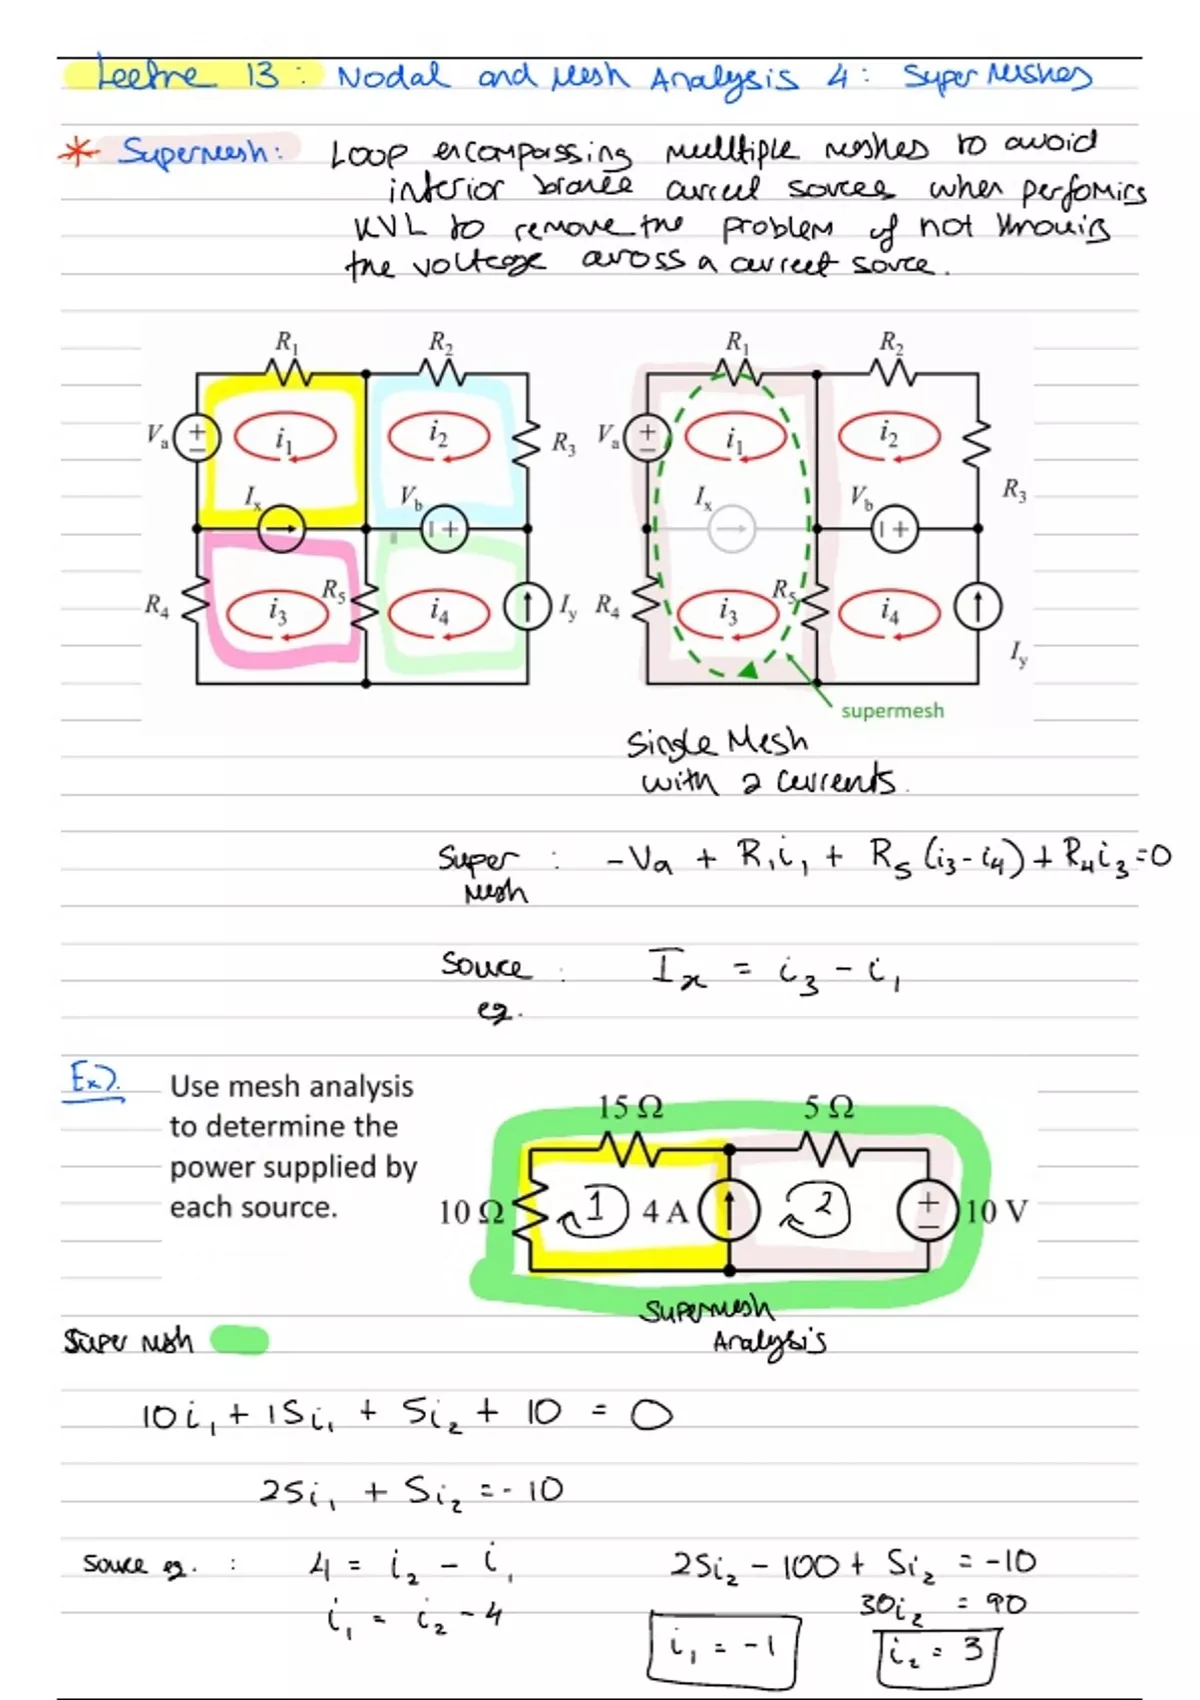 Lecture 13: Nodal and Mesh Analysis 4: Super Meshes
* Supermesh: Loop encompassing mulltiple meshes to avoid
interior branch current sources when perfoming
KVL to remove the problem of not knowing
the voltage across a current source.
R1 R2 R1 R2
Va + − i1 i2 R3 Va + − i1 i2 R3
Ix Vb − + Ix Vb − +
R4 i3 R5 i4 Iy R4 i3 R5 i4 Iy
supermesh
Single Mesh
with 2 currents.
Super : -Va + R1i1 + R5 (i3-i4) + R4i3=0
Mesh
Souce : Ix = i3 - i1
eq.
Ex).
Use mesh analysis
to determine the
power supplied by
each source.
15 Ω 5 Ω
10 Ω 1 4 A 2 + − 10 V
Supermesh
Analysis
Super mesh
10i1 + 15i1 + 5i2 + 10 = 0
25i1 + 5i2 = -10
Souce eq. : 4 = i2 - i1 25i2 - 100 + 5i2 = -10
i1 = i2 - 4 30i2 = 90
i1 = -1 i2 = 3